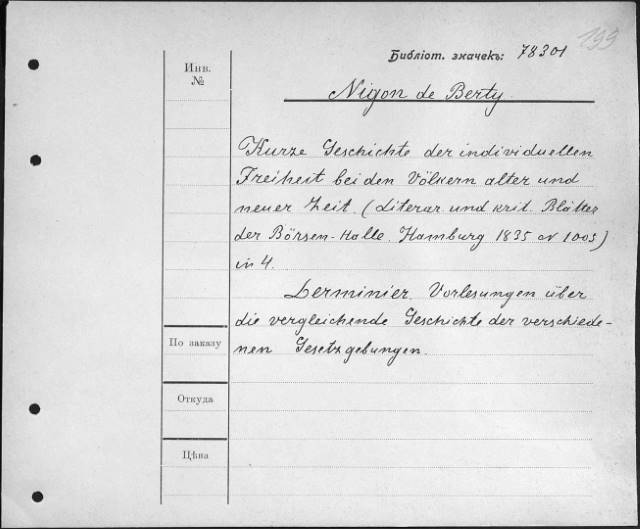 199
Библіот. значекъ: 78301
Инв.
№
Nigon de Berty.
Kurze Geschichte der individuellen
Freiheit bei den Völkern alter und
neuer Zeit. (Literar. und krit. Blätter
der Börsen-Halle. Hamburg 1835 № 1005)
in 4.
Lerminier. Vorlesungen über
die vergleichende Geschichte der verschiede-
nen Gesetzgebungen.
По заказу
Откуда
Цѣна